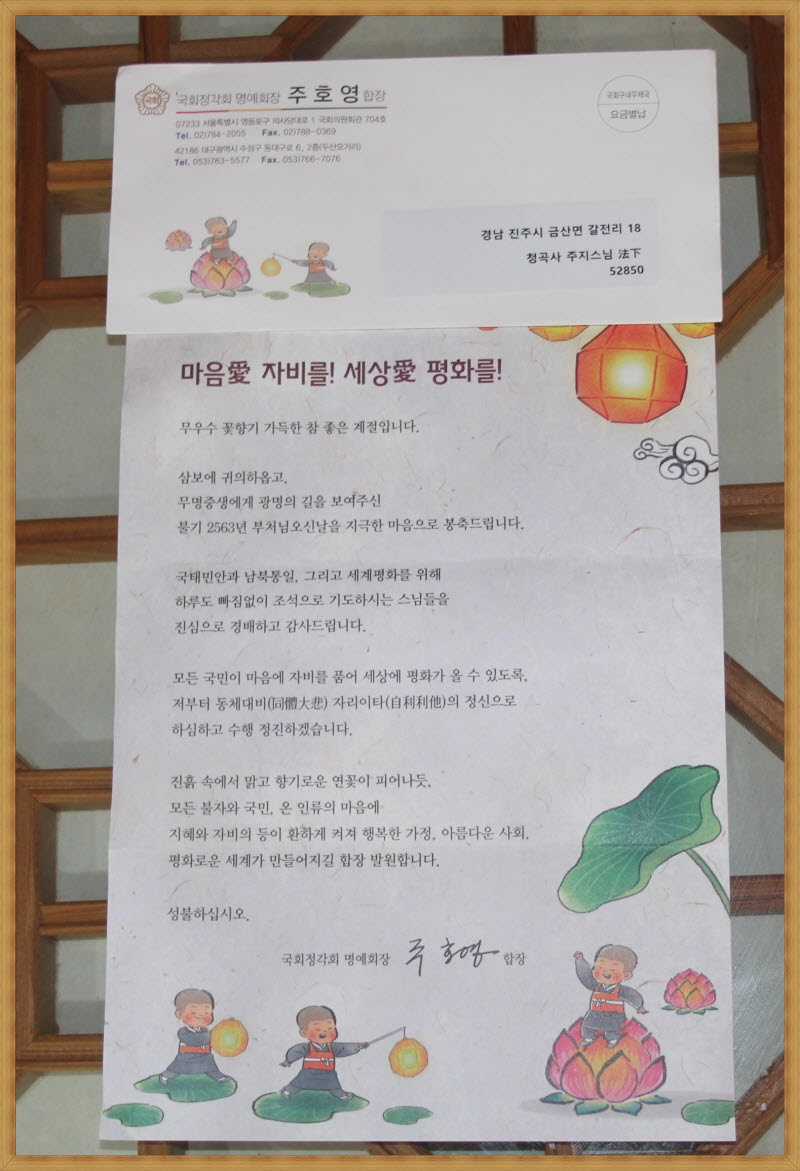 국회
국회정각회 명예회장 주호영 합장
07233 서울특별시 영등포구 의사당대로 1 국회의원회관 704호
Tel. 02)784-2055 Fax. 02)788-0369
42186 대구광역시 수성구 동대구로 6, 2층(두산오거리)
Tel. 053)763-5577 Fax. 053)766-7076
국회구내우체국
요금별납
경남 진주시 금산면 갈전리 18
청곡사 주지스님 法下
52850
마음愛 자비를! 세상愛 평화를!
무우수 꽃향기 가득한 참 좋은 계절입니다.
삼보에 귀의하옵고,
무명중생에게 광명의 길을 보여주신
불기 2563년 부처님오신날을 지극한 마음으로 봉축드립니다.
국태민안과 남북통일, 그리고 세계평화를 위해
하루도 빠짐없이 조석으로 기도하시는 스님들을
진심으로 경배하고 감사드립니다.
모든 국민이 마음에 자비를 품어 세상에 평화가 올 수 있도록,
저부터 동체대비(同體大悲) 자리이타(自利利他)의 정신으로
하심하고 수행 정진하겠습니다.
진흙 속에서 맑고 향기로운 연꽃이 피어나듯,
모든 불자와 국민, 온 인류의 마음에
지혜와 자비의 등이 환하게 켜져 행복한 가정, 아름다운 사회,
평화로운 세계가 만들어지길 합장 발원합니다.
성불하십시오.
국회정각회 명예회장 주호영 합장